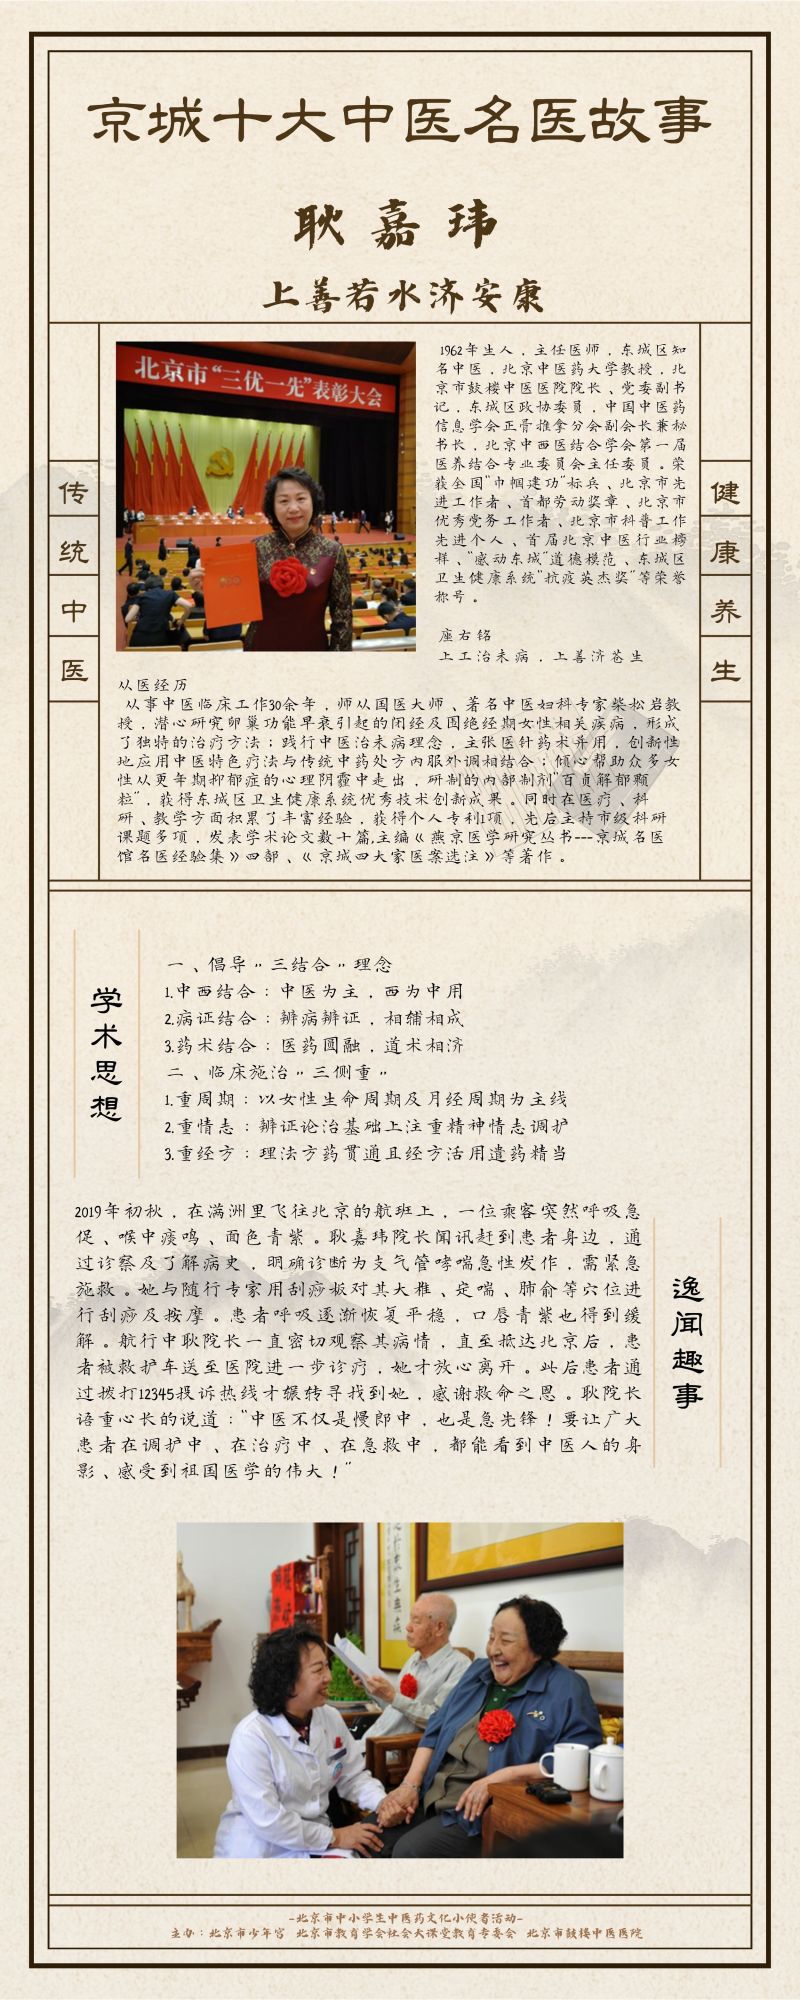 京城十大中医名医故事
耿嘉玮
上善若水济安康
北京市“三优一先”表彰大会
传统中医
健康养生
1962年生人，主任医师，东城区知
名中医，北京中医药大学教授，北
京市鼓楼中医医院院长、党委副书
记，东城区政协委员，中国中医药
信息学会正骨推拿分会副会长兼秘
书长，北京中西医结合学会第一届
医养结合专业委员会主任委员。荣
获全国“巾帼建功”标兵、北京市先
进工作者、首都劳动奖章、北京市
优秀党务工作者、北京市科普工作
先进个人、首届北京中医行业榜
样、“感动东城”道德模范、东城区
卫生健康系统“抗疫英杰奖”等荣誉
称号。
座右铭
上工治未病，上善济苍生
从医经历
从事中医临床工作30余年，师从国医大师、著名中医妇科专家柴松岩教
授，潜心研究卵巢功能早衰引起的闭经及围绝经期女性相关疾病，形成
了独特的治疗方法；践行中医治未病理念，主张医针药术并用，创新性
地应用中医特色疗法与传统中药处方内服外调相结合；倾心帮助众多女
性从更年期抑郁症的心理阴霾中走出，研制的内部制剂“百贞解郁颗
粒”，获得东城区卫生健康系统优秀技术创新成果。同时在医疗、科
研、教学方面积累了丰富经验，获得个人专利1项，先后主持市级科研
课题多项，发表学术论文数十篇,主编《燕京医学研究丛书---京城名医
馆名医经验集》四部、《京城四大家医案选注》等著作。
学术思想
一、倡导“三结合”理念
1.中西结合：中医为主，西为中用
2.病证结合：辨病辨证，相辅相成
3.药术结合：医药圆融，道术相济
二、临床施治“三侧重”
1.重周期：以女性生命周期及月经周期为主线
2.重情志：辨证论治基础上注重精神情志调护
3.重经方：理法方药贯通且经方活用遣药精当
2019年初秋，在满洲里飞往北京的航班上，一位乘客突然呼吸急
促、喉中痰鸣、面色青紫。耿嘉玮院长闻讯赶到患者身边，通
过诊察及了解病史，明确诊断为支气管哮喘急性发作，需紧急
施救。她与随行专家用刮痧板对其大椎、定喘、肺俞等穴位进
行刮痧及按摩。患者呼吸逐渐恢复平稳，口唇青紫也得到缓
解。航行中耿院长一直密切观察其病情，直至抵达北京后，患
者被救护车送至医院进一步诊疗，她才放心离开。此后患者通
过拨打12345投诉热线才辗转寻找到她，感谢救命之恩。耿院长
语重心长的说道：“中医不仅是慢郎中，也是急先锋！要让广大
患者在调护中、在治疗中、在急救中，都能看到中医人的身
影、感受到祖国医学的伟大！”
逸闻趣事
-北京市中小学生中医药文化小使者活动-
主办：北京市少年宫 北京市教育学会社会大课堂教育专委会 北京市鼓楼中医医院